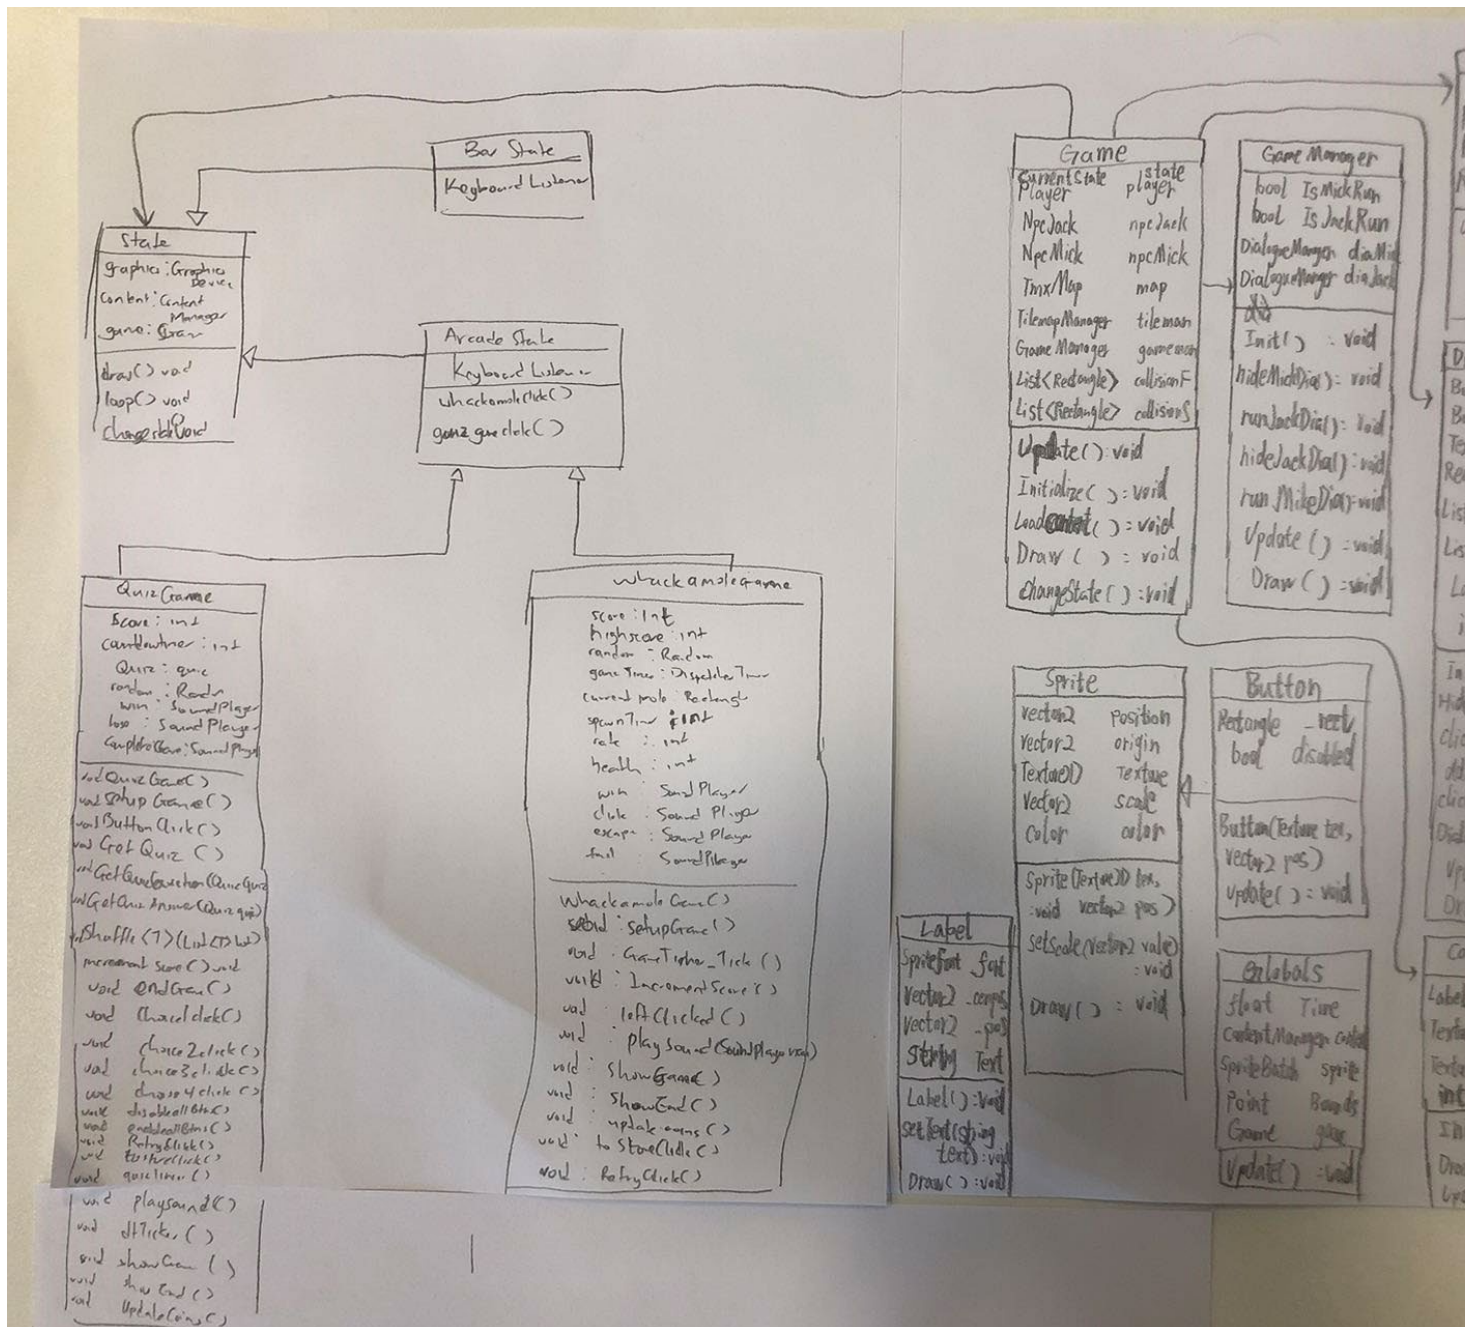 Bar State
Keyboard Listener
State
graphics : Graphics
Device
Content : Content
Manager
game : Game
draw() void
loop() void
Arcade State
Keyboard Listener
whackamoleclick()
QuizGame
Score : int
Quiz : quiz
random : Random
win : SoundPlayer
lose : SoundPlayer
void QuizGame()
void setup Game()
void Button Click()
void Get Quiz ()
void Shuffle<T>(List<T> list)
increment score() void
void endGame()
void choice1click()
void choice2click()
void choice3click()
void choice4click()
void disableallBtns()
void enableallBtns()
void RetryClick()
void
void
void playsound()
void dtTicker()
void showGame ()
void show End()
void UpdateCoins()
whackamolegame
score : Int
highscore : int
random : Random
gameTimer : DispatcherTimer
current mole : Rectangle
spawnTimer : int
rate : int
health : int
win : Sound Player
: Sound Player
escape : Sound Player
fail : SoundPlayer
whackamole Game()
void : setupGame()
void : GameTicker_Tick ()
void : IncrementScore()
void : leftClicked()
void : playsound(SoundPlayer
void : ShowGame()
void : ShowEnd()
void : update coins()
void : to StoreClick()
void : RetryClick()
Game
currentState state
player player
NpcJack npcJack
NpcMick npcMick
TmxMap map
TilemapManager tileman
GameManager gameman
List<Rectangle> collisionF
List<Rectangle> collisionS
Update() : void
Initialize( ) : void
LoadContent() : void
Draw ( ) : void
changeState( ) : void
Game Manager
bool IsMickRun
bool IsJackRun
DialogueManager diaMick
DialogueManger diaJack
Init() : void
hideMickDial() : void
runJackDial() : void
hideJackDial() : void
run MikeDial() : void
Update ( ) : void
Draw ( ) : void
Sprite
vector2 position
vector2 origin
Texture2D Texture
Vector2 scale
Color color
Sprite(Texture2D tex,
: void vector2 pos)
setScale(Vector2 value)
: void
Draw() : void
Button
Rectangle _rect
bool disabled
Button(Texture tex,
vector2 pos)
update() : void
Label
Spritefont font
Vector2
Vector2 _pos
String Text
Label() : void
setText(string
text) : void
Draw() : void
Globals
float Time
ContentManager content
SpriteBatch sprite
Point Bounds
Game game
Update() : void
Label
int